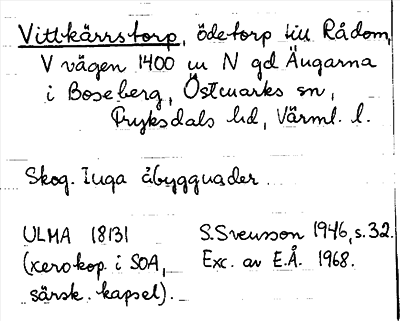 Vittkärrstorp, ödetorp till Rådom,
V vägen 1400 m N gd Ängarna
i Boseberg, Östmarks sn,
Fryksdals hd, Värml. l.
Skog. Inga åbyggnader.
ULMA 18131 S. Svensson 1946, s. 32.
(xerokop. i SOA, Exc. av E.Å. 1968.
särsk. kapsel).